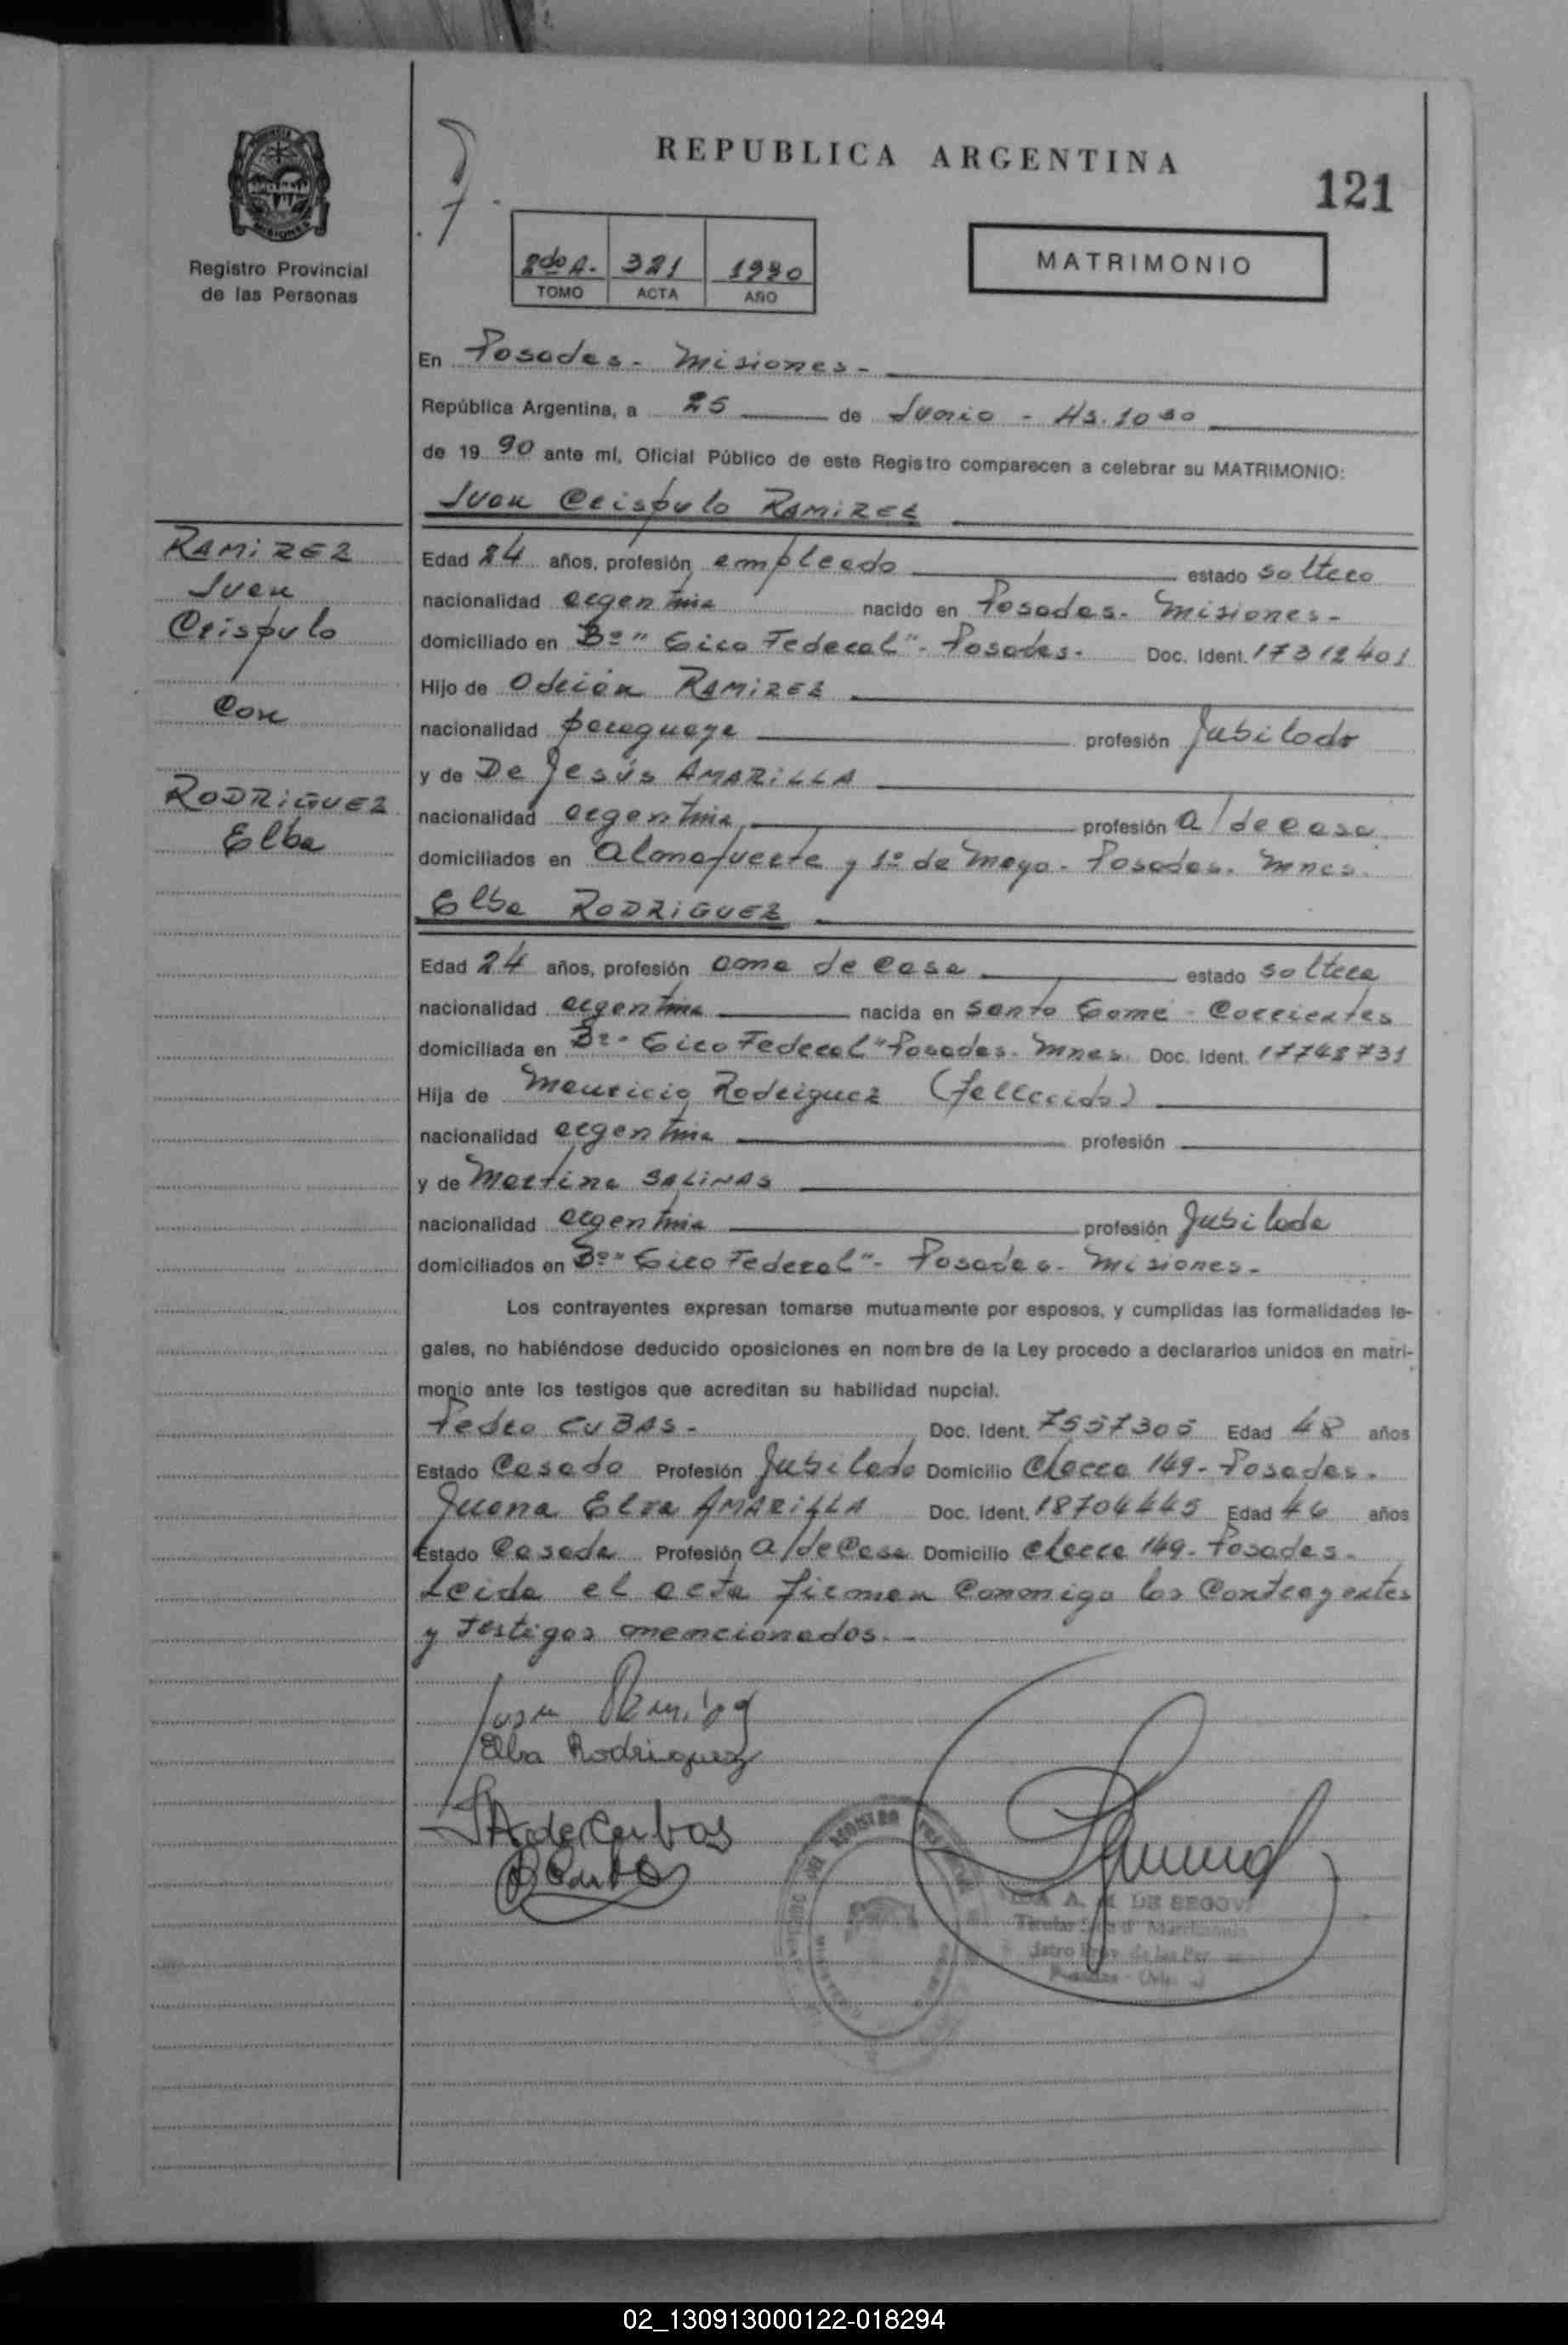 REPUBLICA ARGENTINA
121
Registro Provincial
de las Personas
2do A. 321 1990
TOMO ACTA AÑO
MATRIMONIO
En Posadas - Misiones -
República Argentina, a 25 de Junio - Hs. 10 30
de 1990 ante mí, Oficial Público de este Registro comparecen a celebrar su MATRIMONIO:
Juan Crispulo RAMIREZ
RAMIREZ
Juan
Crispulo
Con
RODRIGUEZ
Elba
Edad 24 años, profesión empleado estado soltero
nacionalidad argentina nacido en Posadas - Misiones -
domiciliado en Bº "Tiro Federal" - Posadas - Doc. Ident. 17312401
Hijo de RAMIREZ
nacionalidad paraguaya profesión Jubilado
y de De Jesús AMARILLA
nacionalidad argentina profesión a/de casa
domiciliados en Almafuerte y 1º de Mayo - Posadas. Mnes.
Elba RODRIGUEZ
Edad 24 años, profesión ama de casa estado soltera
nacionalidad argentina nacida en Santo Tomé - Corrientes
domiciliada en Bº - Tiro Federal" Posadas - Mnes. Doc. Ident. 17748731
Hija de Mauricio Rodriguez (fallecido)
nacionalidad argentina profesión
y de Martina SALINAS
nacionalidad argentina profesión Jubilada
domiciliados en Bº "Tiro Federal" - Posadas - Misiones -
Los contrayentes expresan tomarse mutuamente por esposos, y cumplidas las formalidades le-
gales, no habiéndose deducido oposiciones en nombre de la Ley procedo a declararlos unidos en matri-
monio ante los testigos que acreditan su habilidad nupcial.
Pedro CUBAS - Doc. Ident. 7557305 Edad 48 años
Estado Casado Profesión Jubilado Domicilio Chacra 149 - Posadas -
Juana Elva AMARILLA Doc. Ident. 18704445 Edad 46 años
Estado Casada Profesión a/de Casa Domicilio Chacra 149 - Posadas -
Leida el acta firman Conmigo los Contrayentes
y Testigos mencionados. -
Juan Ramirez
Elba Rodriguez
A de Cubas
A. M. DE SEGOV
02_130913000122-018294